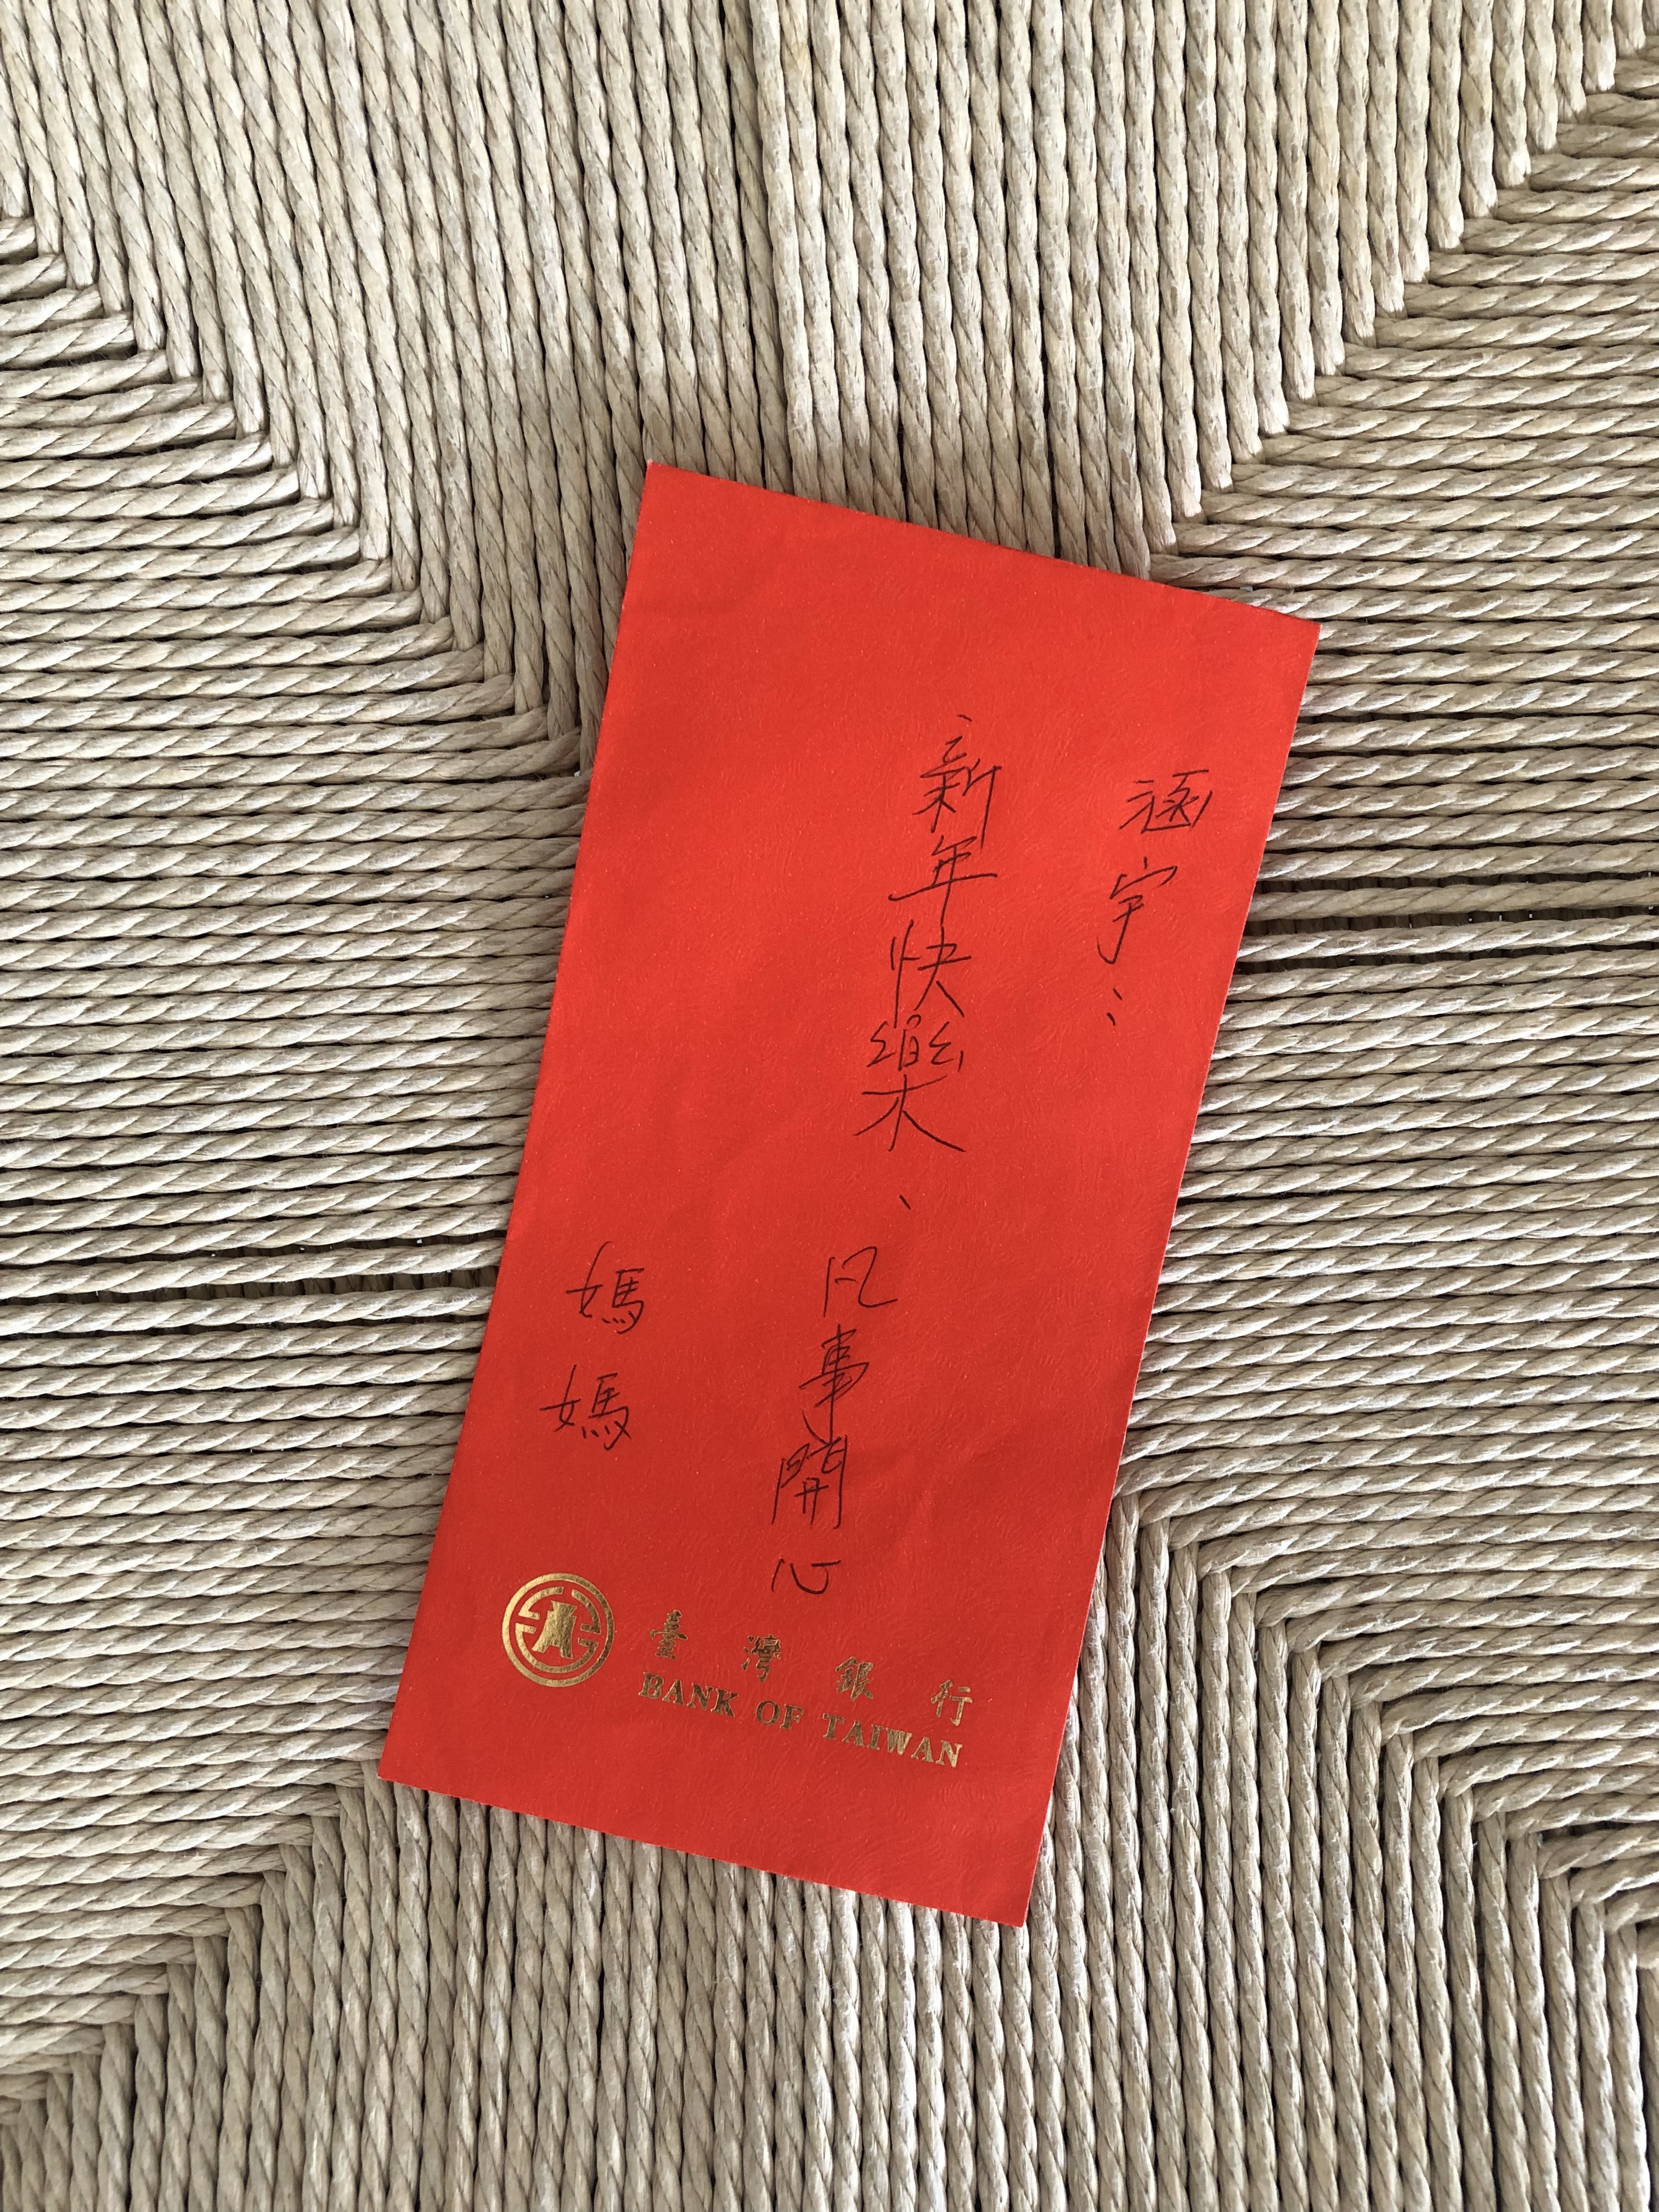 涵宇:
新年快樂、凡事開心
媽媽
臺灣銀行
BANK OF TAIWAN